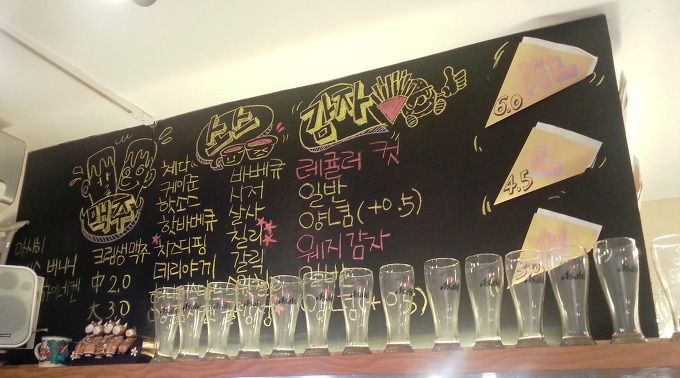 맥주
아사히
크림생맥주
中 2.0
大 3.0
소스
체다
케이준
핫소스
핫바베큐
치즈디핑
데리야끼
바베큐
시저
살사
칠리
갈릭
감자
레귤러 컷
일반
양념(+0.5)
웨지감자
일반
양념(+0.5)
XL
6.0
L
4.5
M
Asahi
Asahi
Asahi
Asahi
Asahi
Asahi